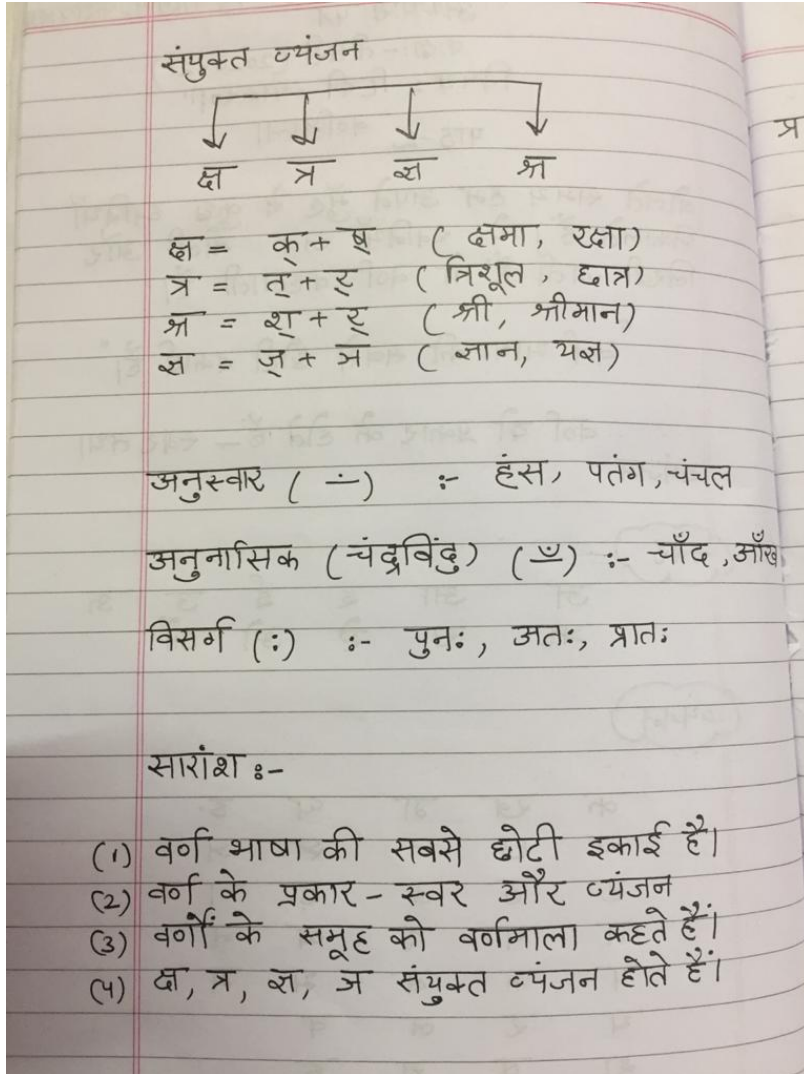 संयुक्त व्यंजन
क्ष त्र ज्ञ श्र
क्ष = क् + ष् ( क्षमा, रक्षा)
त्र = त् + र् ( त्रिशूल, छात्र)
श्र = श् + र् ( श्री, श्रीमान)
ज्ञ = ज् + ञ ( ज्ञान, यज्ञ)
प्र
अनुस्वार ( ∸ ) :- हंस, पतंग, चंचल
अनुनासिक (चंद्रविंदु) ( ँ ) :- चाँद, आँख
विसर्ग (:) :- पुनः, अतः, प्रातः
सारांश :-
(1) वर्ण भाषा की सबसे छोटी इकाई है।
(2) वर्ण के प्रकार - स्वर और व्यंजन
(3) वर्णों के समूह को वर्णमाला कहते हैं।
(4) क्ष, त्र, ज्ञ, श्र संयुक्त व्यंजन होते हैं।